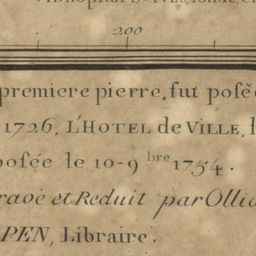 200
premiere pierre, fut posée
1726, L'HOTEL de VILLE,
posée le 10-9 bre 1754.
et Reduit par
PEN, Libraire.